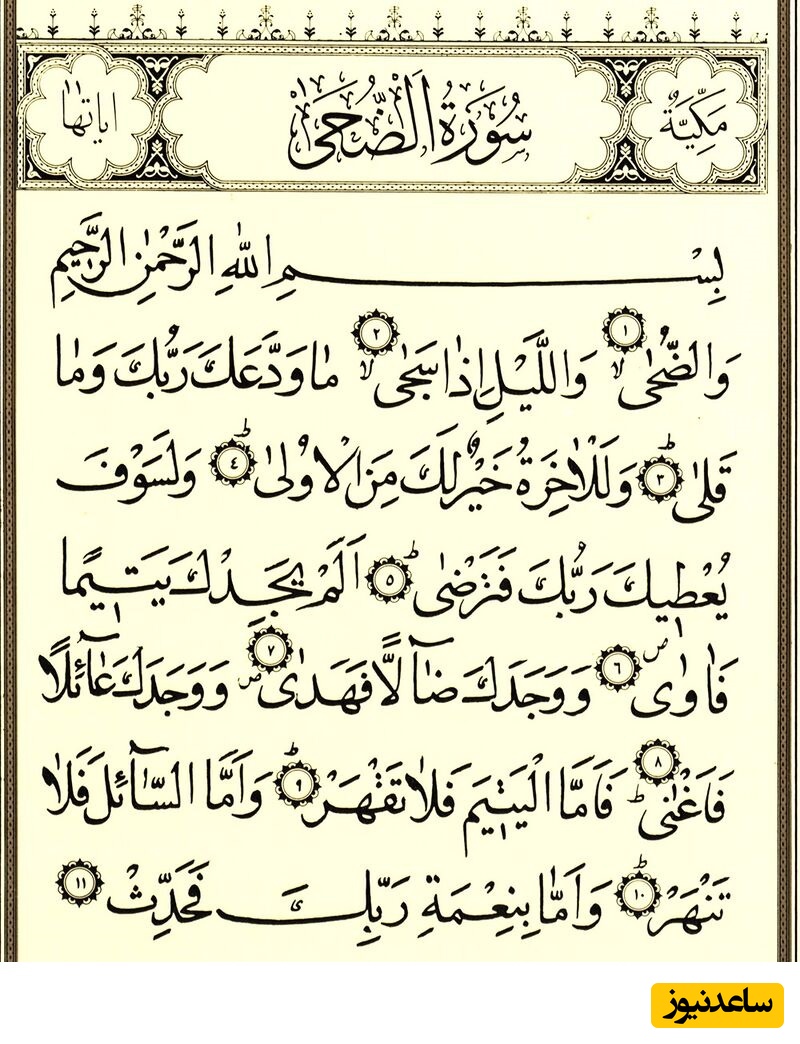 مَكِّيَّةٌ سُورَةُ الضُّحَىٰ اياتها ١١
بِسْمِ اللّٰهِ الرَّحْمٰنِ الرَّحِيمِ
وَالضُّحٰى ۙ ١ وَاللَّيْلِ اِذَا سَجٰى ۙ ٢ مٰا وَدَّعَكَ رَبُّكَ وَمٰا
قَلٰى ۗ ٣ وَلَلْاٰخِرَةُ خَيْرٌ لَكَ مِنَ الْاُولٰى ۗ ٤ وَلَسَوْفَ
يُعْطِيكَ رَبُّكَ فَتَرْضٰى ۗ ٥ اَلَمْ يَجِدْكَ يَتِيمًا
فَاٰوٰى ۖ ٦ وَوَجَدَكَ ضَٓالًّا فَهَدٰى ۖ ٧ وَوَجَدَكَ عَٓائِلًا
فَاَغْنٰى ۗ ٨ فَاَمَّا الْيَتِيمَ فَلٰا تَقْهَرْ ۗ ٩ وَاَمَّا السَّٓائِلَ فَلٰا
تَنْهَرْ ۗ ١٠ وَاَمّٰا بِنِعْمَةِ رَبِّكَ فَحَدِّثْ ١١
ساعدنیوز